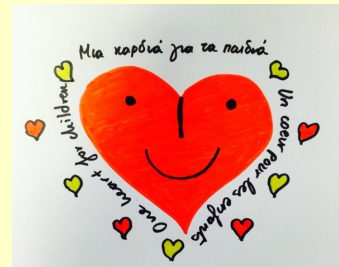 Μια καρδιά για τα παιδιά
Un coeur pour les enfants
One heart for children